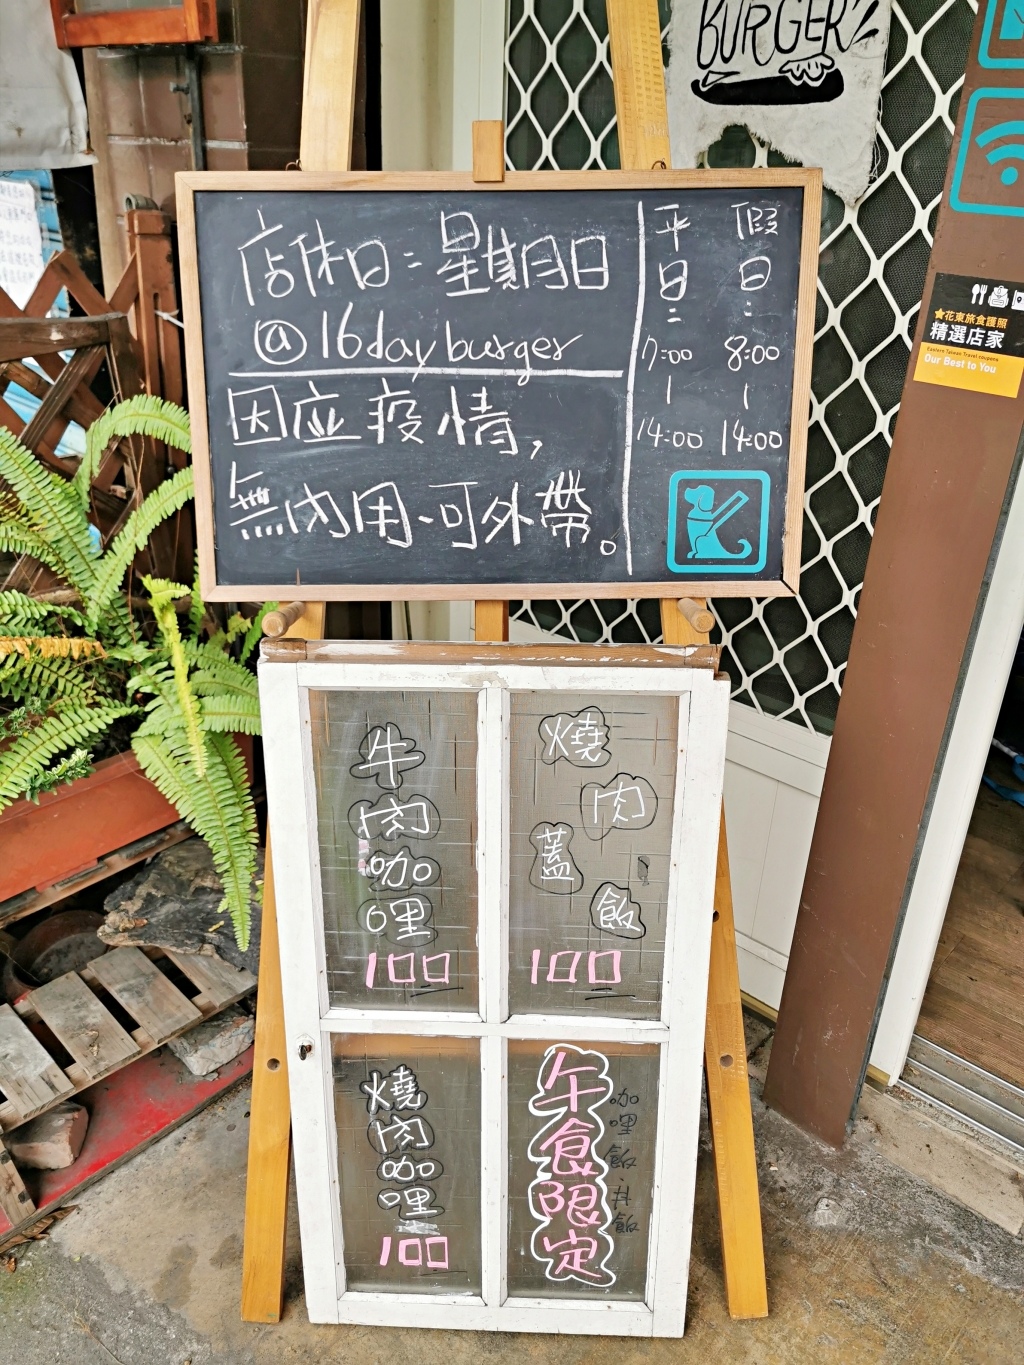 BURGER
店休日：星期日
@16day burger
因应疫情，
無內用、可外帶。
平日：
7:00
|
14:00
假日：
8:00
|
14:00
花東旅食護照
精選店家
Eastern Taiwan Travel coupons
Our Best to You
牛肉咖哩
100
燒肉蓋飯
100
燒肉咖哩
100
午食限定
咖哩飯 丼飯